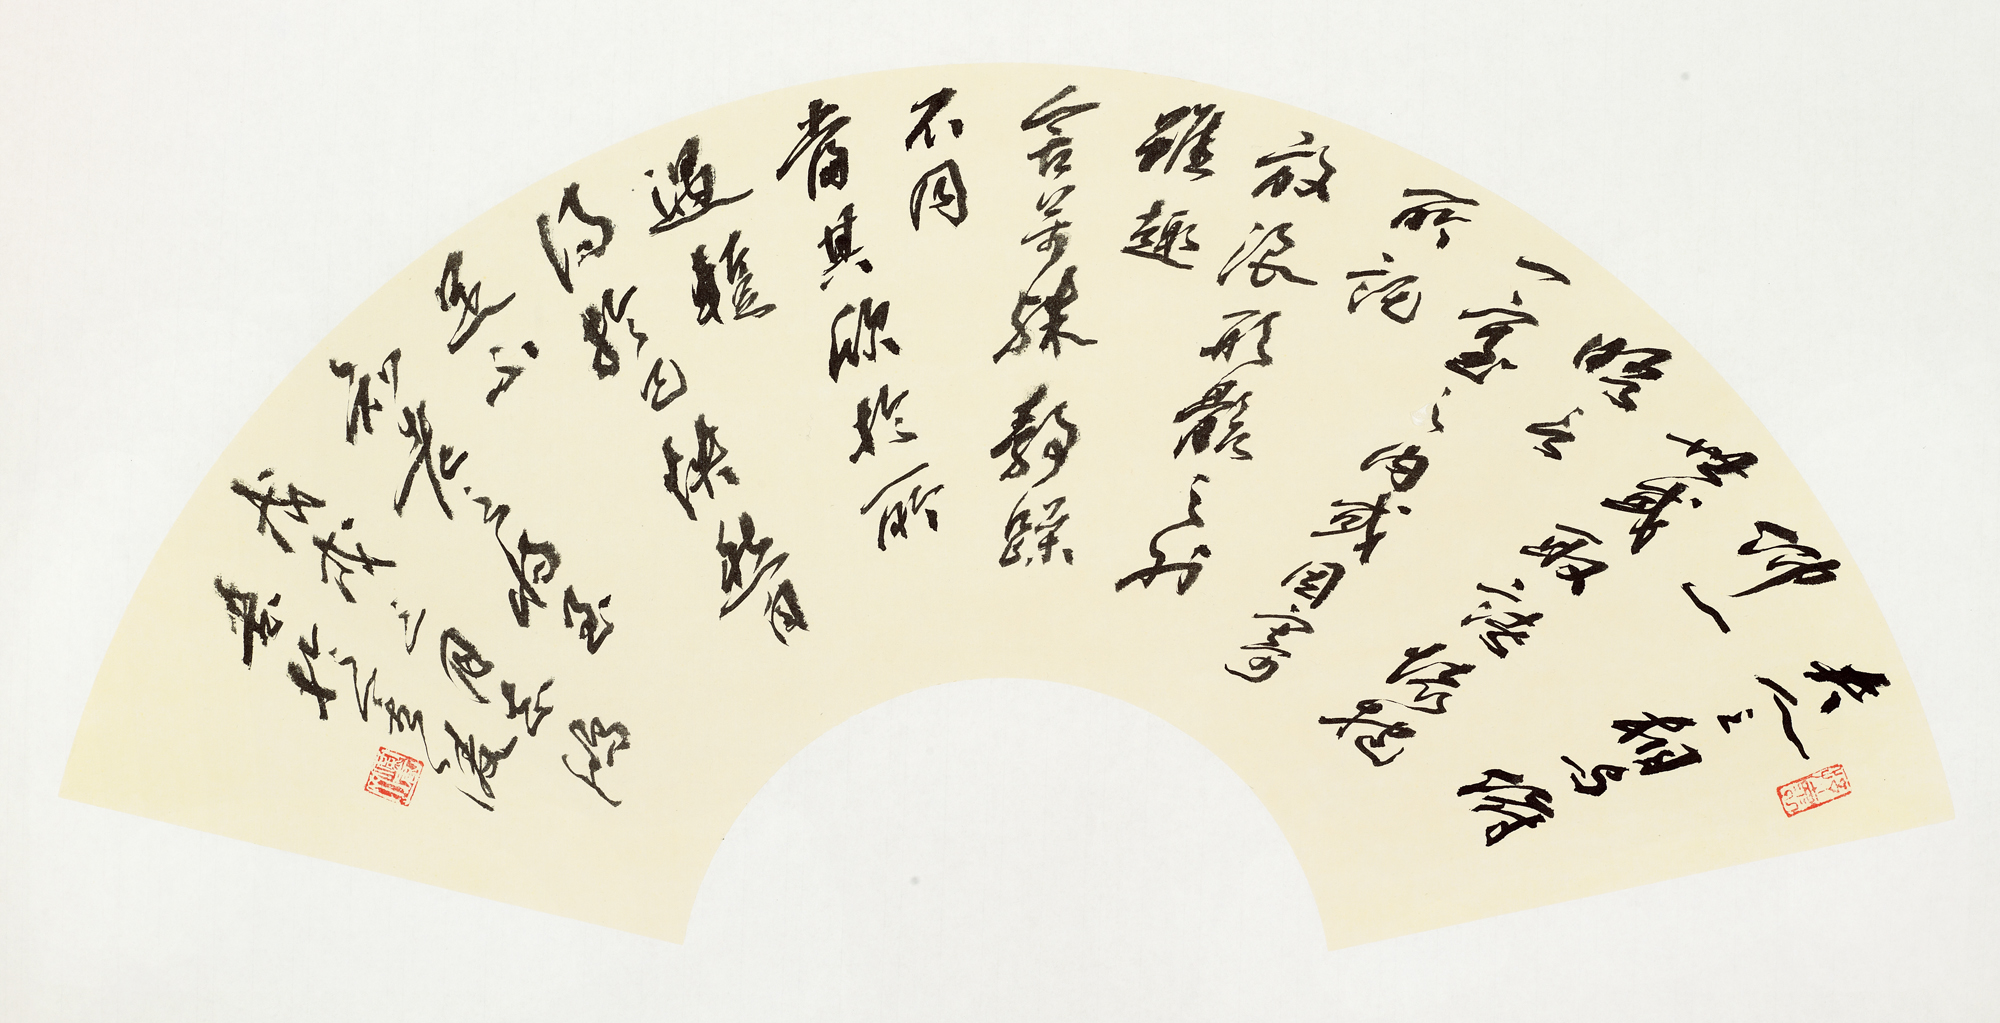 夫人之相與俯
仰一
世或取諸懷抱
晤言
一室之內或因寄
所託
放浪形骸之外
雖趣
舍萬殊靜躁
不同
當其欣於所
遇暫
得於己快然自
足不
知老之將至